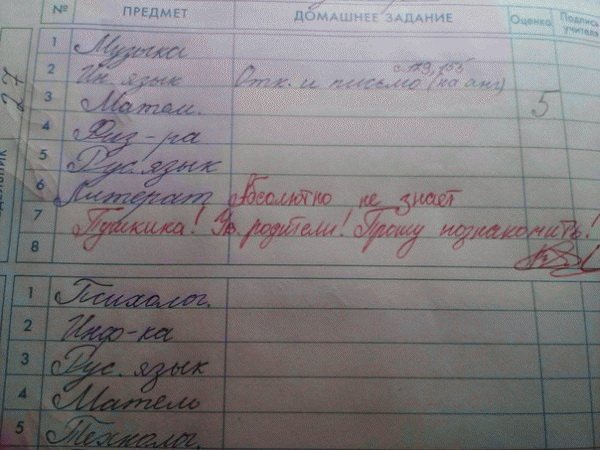 № ПРЕДМЕТ ДОМАШНЕЕ ЗАДАНИЕ Оценка Подпись учителя
1 Музыка
2 Ин. язык Отк. и письмо (на анг) с. 119, 155
3 Матем. 5
4 Физ-ра
5 Рус. язык
6 Литерат Абсолютно не знает
7 Пушкина! Ув. родители! Прошу познакомить!
8
27
1 Психолог.
2 Инф-ка
3 Рус. язык
4 Матем
5 Технолог.